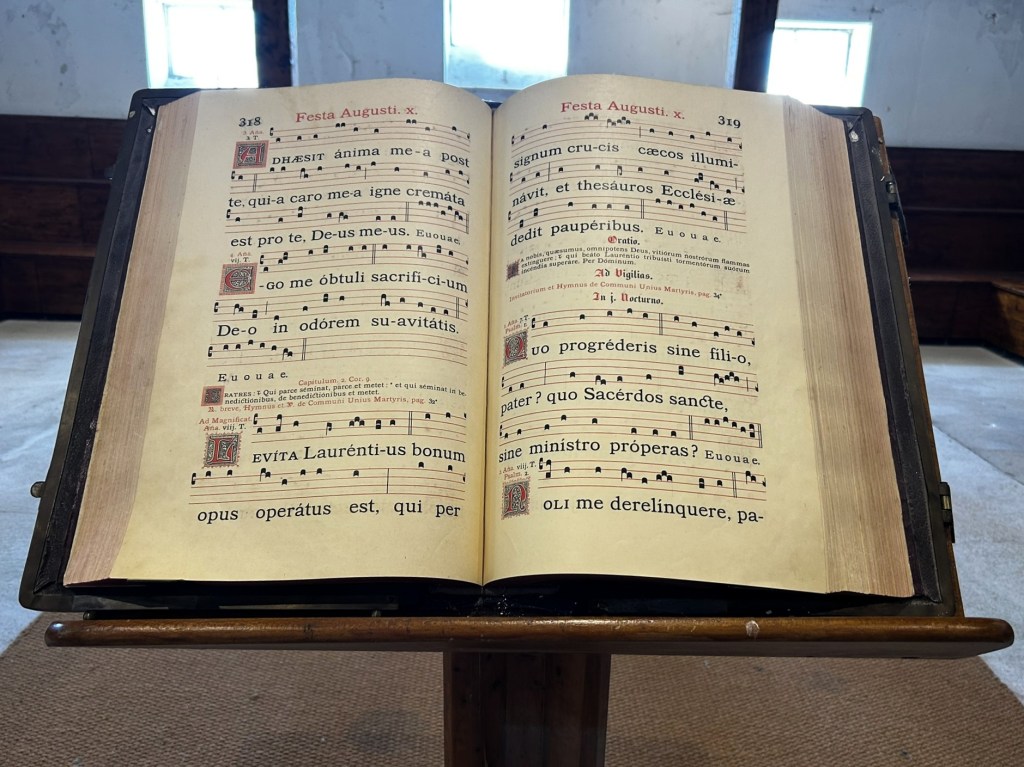 318
Festa Augusti. x.
3 Aña.
2 T.
ADHÆSIT ánima me-a post
te, qui-a caro me-a igne cremáta
est pro te, De-us me-us. Euouae.
4 Aña.
vij. T.
EGO me óbtuli sacrifí-ci-um
De-o in odórem su-avitátis.
Euouae.
Capítulum, 2. Cor. 9.
FRATRES: Qui parce séminat, parce et metet: * et qui séminat in be-
nedictiónibus, de benedictiónibus et metet.
℟. breve, Hymnus et ℣. de Communi Unius Martyris, pag. 32*
Ad Magnificat.
Aña. viij. T.
LEVÍTA Laurénti-us bonum
opus operátus est, qui per
Festa Augusti. x.
319
signum cru-cis cæcos illumi-
návit, et thesáuros Ecclési-æ
dedit paupéribus. Euouae.
Oratio.
DA nobis, quæsumus, omnípotens Deus, vitiórum nostrórum flammas
extínguere: qui beáto Lauréntio tribuísti tormentórum suórum
incéndia superáre. Per Dóminum.
Ad Vigilias.
Invitatorium et Hymnus de Communi Unius Martyris, pag. 34*
In j. Nocturno.
1 Aña. 7. T.
Psalm. 1.
QUO progréderis sine fíli-o,
pater? quo Sacérdos sancte,
sine minístro próperas? Euouae.
2 Aña. viij T.
Psalm. 2.
NOLI me derelínquere, pa-